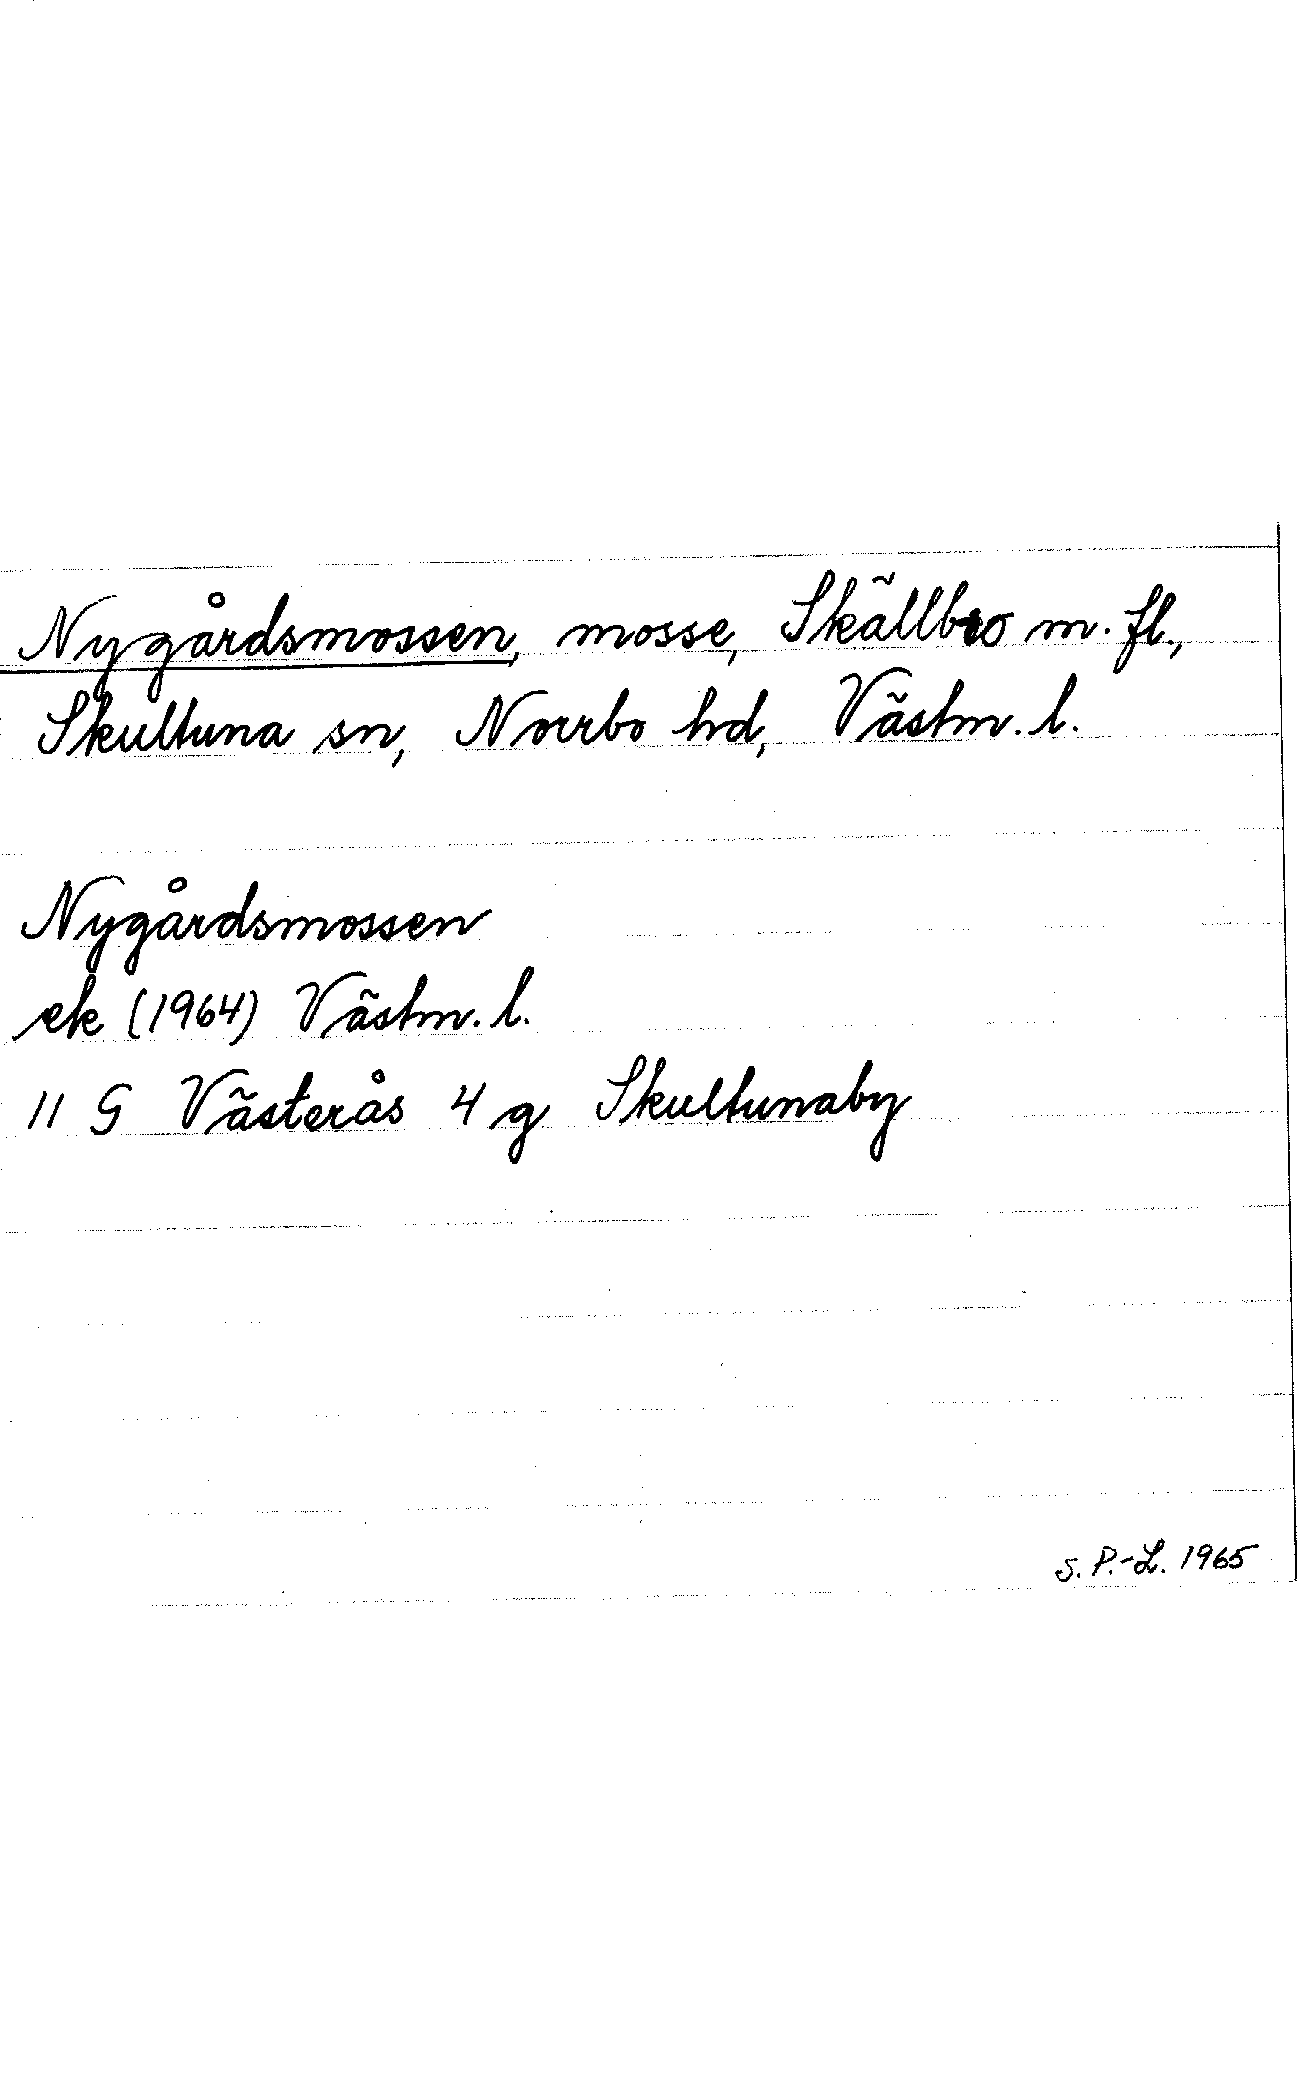 Nygårdsmossen, mosse, Skällbro m. fl.,
Skultuna sn, Norrbo hd, Västm. l.
Nygårdsmossen
ek (1964) Västm. l.
11 G Västerås 4 g Skultunaby
S. P.-L. 1965